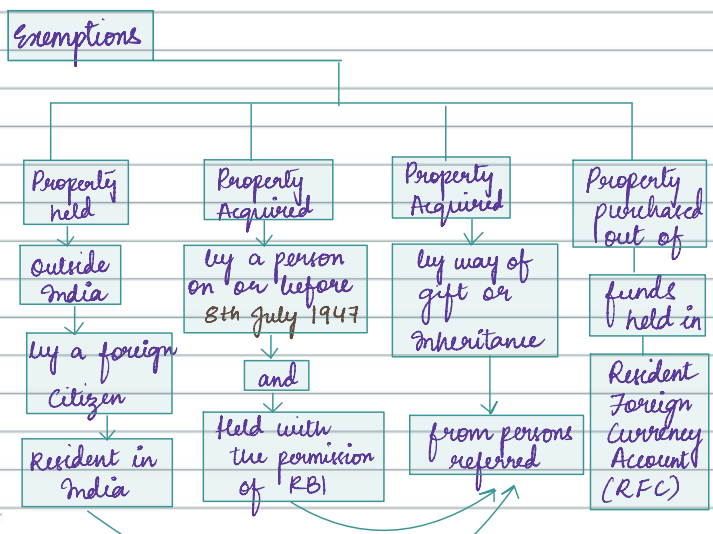 Exemptions
Property
held
Outside
India
by a foreign
Citizen
Resident in
India
Property
Acquired
by a person
on or before
8th July 1947
and
Held with
the permission
of RBI
Property
Acquired
by way of
gift or
Inheritance
from persons
referred
Property
purchased
out of
funds
held in
Resident
Foreign
Currency
Account
(RFC)